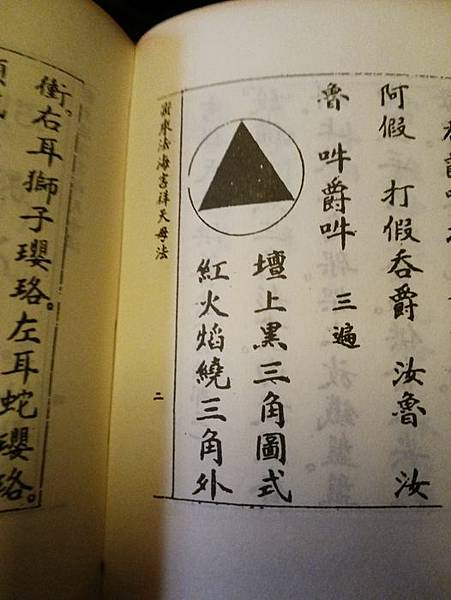 阿假 打假呑爵 汝魯 汝
魯 吽爵吽 三遍
壇上黑三角圖式
紅火焰繞三角外
密乘法海吉祥天母法 二
衝。右耳獅子瓔珞。左耳蛇瓔珞。